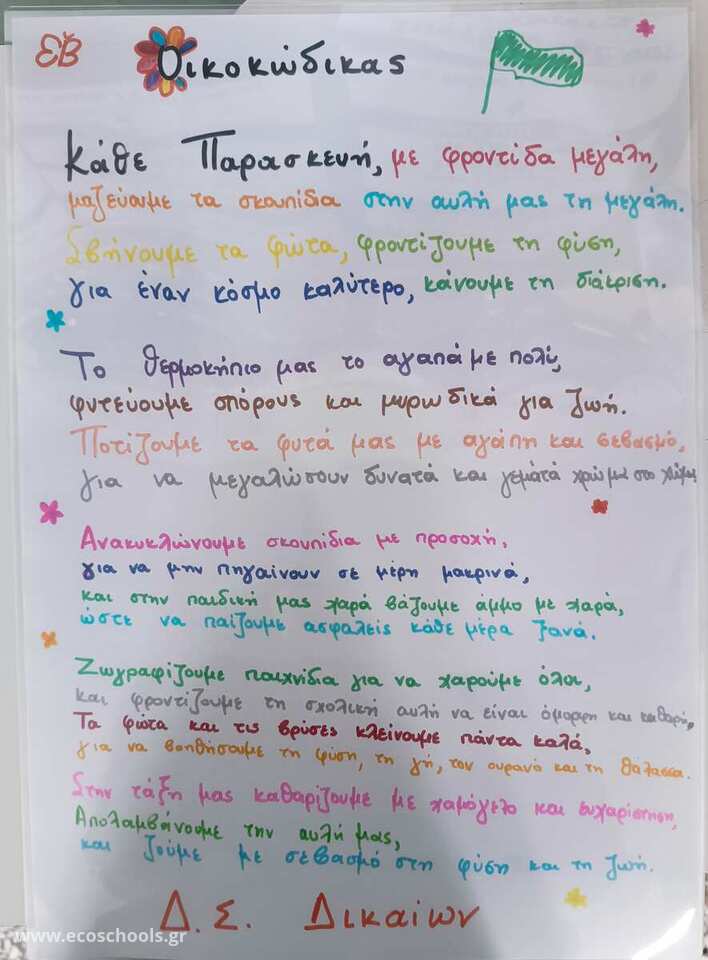 Έβ
Οικοκώδικας
Κάθε Παρασκευή, με φροντίδα μεγάλη,
μαζεύουμε τα σκουπίδια στην αυλή μας τη μεγάλη.
Σβήνουμε τα φώτα, φροντίζουμε τη φύση,
για έναν κόσμο καλύτερο, κάνουμε τη διάκριση.
Το θερμοκήπιο μας το αγαπάμε πολύ,
φυτεύουμε σπόρους και μυρωδικά για ζωή.
Ποτίζουμε τα φυτά μας με αγάπη και σεβασμό,
για να μεγαλώσουν δυνατά και γεμάτα χρώμα στο
Ανακυκλώνουμε σκουπίδια με προσοχή,
για να μην πηγαίνουν σε μέρη μακρινά,
και στην παιδική μας χαρά βάζουμε άμμο με χαρά,
ώστε να παίζουμε ασφαλείς κάθε μέρα ξανά.
Ζωγραφίζουμε παιχνίδια για να χαρούμε όλοι,
και φροντίζουμε τη σχολική αυλή να είναι όμορφη και καθαρή,
Τα φώτα και τις βρύσες κλείνουμε πάντα καλά,
για να βοηθήσουμε τη φύση, τη γή, τον ουρανό και τη θάλασσα.
Στην τάξη μας καθαρίζουμε με χαμόγελο και ευχαρίστηση,
Απολαμβάνουμε την αυλή μας,
και ζούμε με σεβασμό στη φύση και τη ζωή.
Δ.Σ. Δικαίων
www.ecoschools.gr